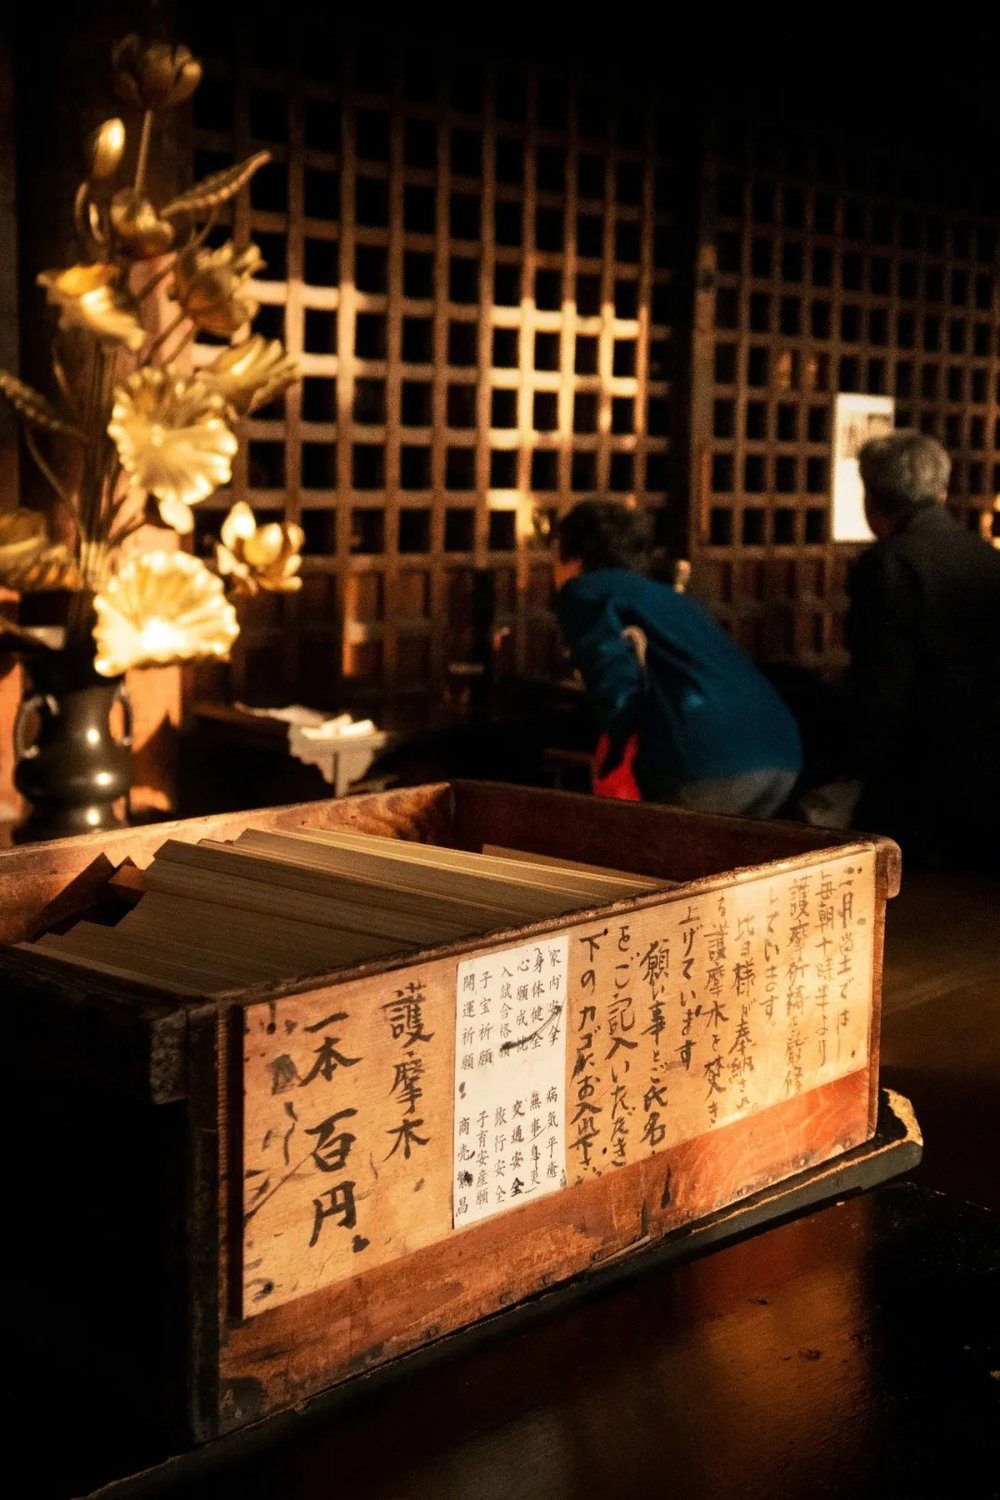 二月堂では
毎朝十時半より
護摩祈祷を厳修
しています。
皆様が奉納さ
る護摩木を焚き
上げています
願い事とご氏名
をご記入いただき
下のカゴにお入れ下さい
家内安全 病気平癒
身体健全 無事息災
心願成就 交通安全
入試合格願 旅行安全
子宝祈願 子育安産願
開運祈願 商売繁昌
護摩木
一本百円